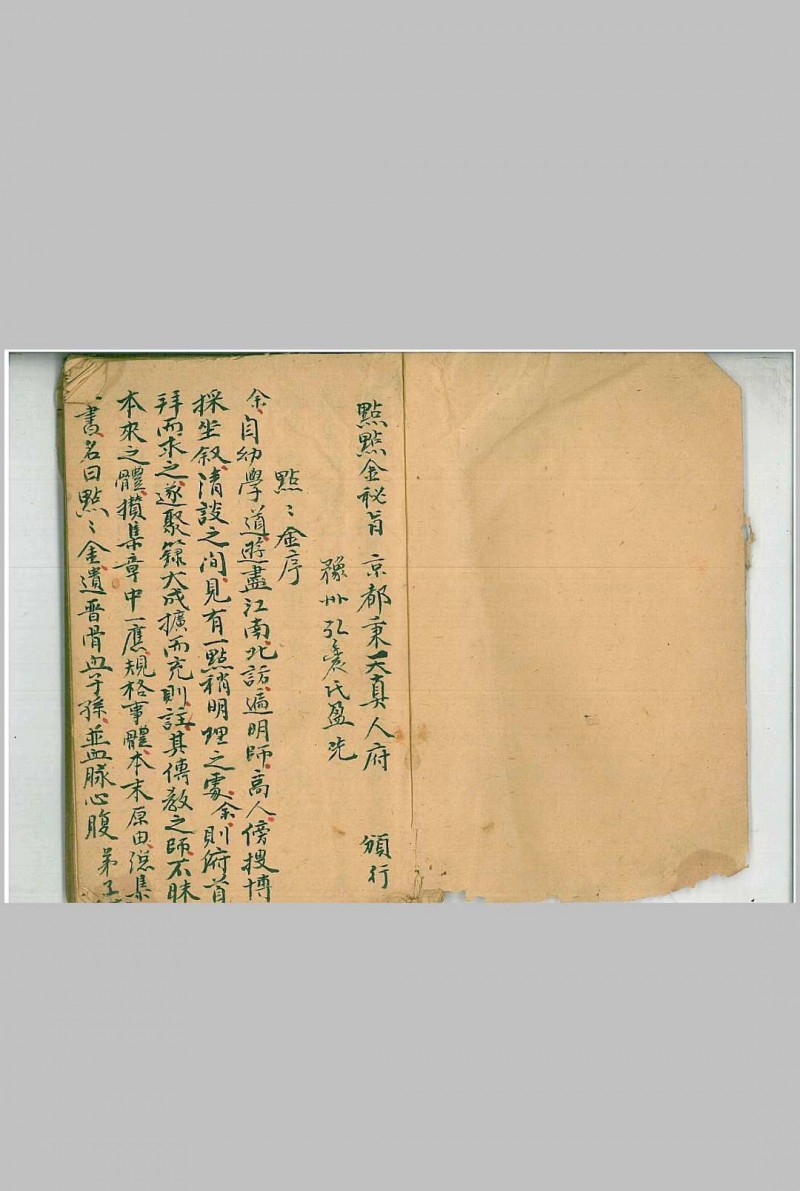 點點金秘旨 京都秉天真人府 頒行
豫州弘農氏盈光
點〻金序
余自幼學道遊盡江南北訪遍明師高人傍搜博
採坐叙清談之间見有一點稍明理之處余則俯首
拜而求之遂聚籙大成擴而充則註其傳教之師不昧
本來之體攢集章中一應規格事體本末原由總集
書名曰點〻金遺晋骨血子孫並血脉心腹 弟子